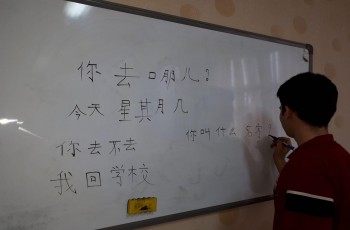 你去哪儿?
今天星期几
你去不去
你叫什么
我回学校